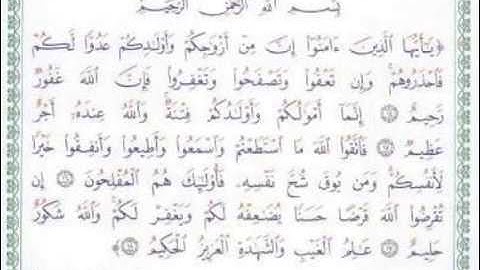 بِسْمِ ٱللَّهِ ٱلرَّحْمَٰنِ ٱلرَّحِيمِ
﴿يَٰٓأَيُّهَا ٱلَّذِينَ ءَامَنُوٓا۟ إِنَّ مِنْ أَزْوَٰجِكُمْ وَأَوْلَٰدِكُمْ عَدُوًّا لَّكُمْ
فَٱحْذَرُوهُمْ ۚ وَإِن تَعْفُوا۟ وَتَصْفَحُوا۟ وَتَغْفِرُوا۟ فَإِنَّ ٱللَّهَ غَفُورٌ
رَّحِيمٌ ١٤ إِنَّمَآ أَمْوَٰلُكُمْ وَأَوْلَٰدُكُمْ فِتْنَةٌ ۚ وَٱللَّهُ عِندَهُۥٓ أَجْرٌ
عَظِيمٌ ١٥ فَٱتَّقُوا۟ ٱللَّهَ مَا ٱسْتَطَعْتُمْ وَٱسْمَعُوا۟ وَأَطِيعُوا۟ وَأَنفِقُوا۟ خَيْرًا
لِّأَنفُسِكُمْ ۗ وَمَن يُوقَ شُحَّ نَفْسِهِۦ فَأُو۟لَٰٓئِكَ هُمُ ٱلْمُفْلِحُونَ ١٦ إِن
تُقْرِضُوا۟ ٱللَّهَ قَرْضًا حَسَنًا يُضَٰعِفْهُ لَكُمْ وَيَغْفِرْ لَكُمْ ۚ وَٱللَّهُ شَكُورٌ
حَلِيمٌ ١٧ عَٰلِمُ ٱلْغَيْبِ وَٱلشَّهَٰدَةِ ٱلْعَزِيزُ ٱلْحَكِيمُ ١٨﴾